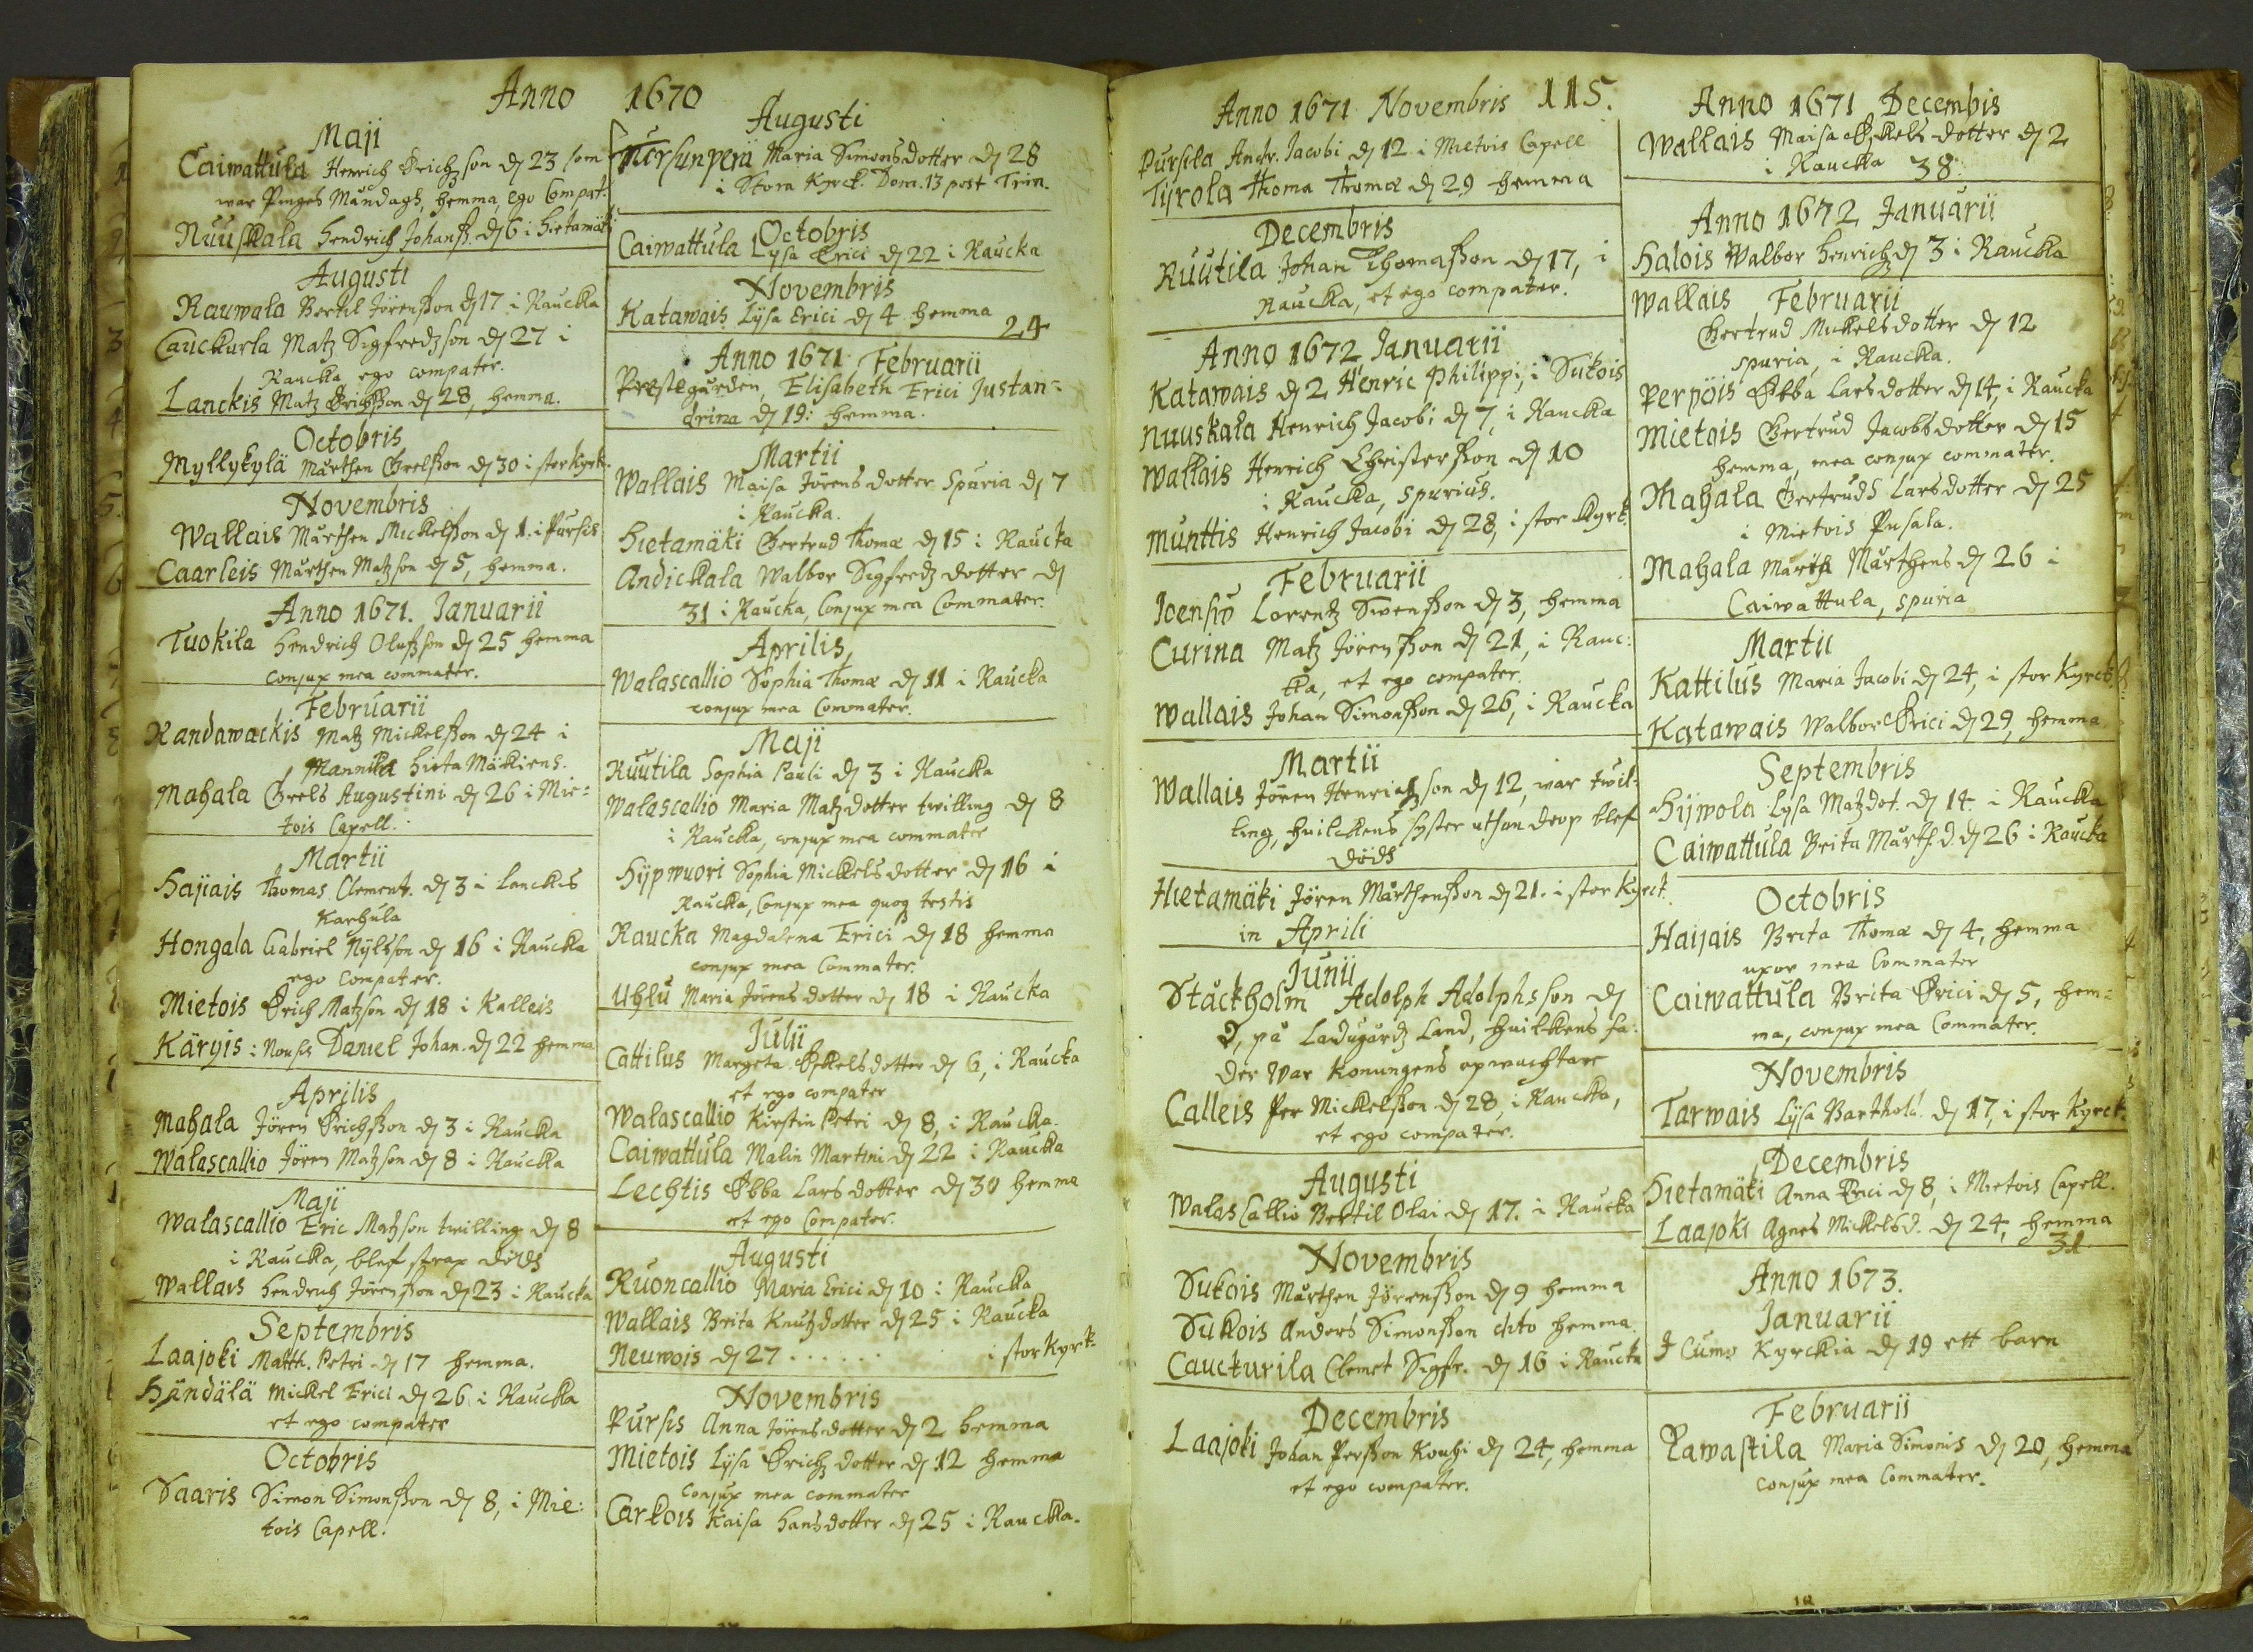 Anno 1670
Maji
Caiwattula Henrich Erichsson dj 23 som
war Pinges Måndagh, hemma, ego Compat.
Nuuskala Hendrich Johanss. dj 6 i Hietamäki
Augusti
Rauwala Bertil Jörensson dj 17 i Raucka
Cauckurla Matz Sigfredzson dj 27 i
Raucka ego compater.
Lanckis Matz Erichsson dj 28, hemma.
Octobris
Myllykylä Mårthen Greelsson dj 30 i storkyrk.
Novembris
Wallais Mårthen Mickelsson dj 1. i Pursis
Caarleis Mårthen Matzson dj 5, hemma.
Anno 1671. Januarii
Tuokila Hendrich Olufsson dj 25 hemma
conjux mea commater.
Februarii
Randawackis Matz Mickelsson dj 24 i
Mannila Hieta Mäkiens.
Mahala Greels Augustini dj 26 i Mie=
tois Capell.
Martii
Hajiais Thomas Clement. dj 3 i Lanckis
Karhula
Hongala Gabriel Nylsson dj 16 i Raucka
ego compater.
Mietois Erich Matzson dj 18 i Kalleis
Kärgis: Nousis Daniel Johan. dj 22 hemma
Aprilis
Mahala Jören Erichsson dj 3 i Raucka
Walascallio Jören Matzson dj 8 i Raucka
Maji
Walascallio Eric Matzson twilling dj 8
i Raucka, blef strax dödh
Wallais Hendrich Jörensson dj 23 i Raucka
Septembris
Laajoki Matth. Petri dj 17 hemma.
Händälä Mickel Erici dj 26 i Raucka
et ego compater
Octobris
Saaris Simon Simonsson dj 8, i Mie:
tois Capell.
Augusti
Tursunperä Maria Simonsdotter dj 28
i Stora Kyrck. Dom. 13 post Trin.
Octobris
Caiwattula Lysa Erici dj 22 i Raucka
Novembris
Katawais Lysa Erici dj 4 hemma
24
Anno 1671 Februarii
Prestegården, Elisabeth Erici Justan=
drina dj 19: hemma.
Martii
Wallais Maisa Jörensdotter Spuria dj 7
i Raucka.
Hietamäki Gertrud Thomæ dj 15 i Raucka
Andickala Walbor Sigfredz dotter dj
31 i Raucka, Conjux mea Commater.
Aprilis
Walascallio Sophia Thomæ dj 11 i Raucka
conjux mea Commater.
Maji
Ruutila Sophia Pauli dj 3 i Raucka
Walascallio Maria Matzdotter twilling dj 8
i Raucka, conjux mea commater
Hypwuori Sophia Mickelsdotter dj 16 i
Raucka, Conjux mea quoq testis
Raucka Magdalena Erici dj 18 hemma
conjux mea Commater.
Uhlu Maria Jörensdotter dj 18 i Raucka
Julii
Cattilus Margeta Eskelsdotter dj 6, i Raucka
et ego compater
Walascallio Kirstin Petri dj 8, i Raucka.
Caiwattula Malin Martini dj 22 i Raucka
Lechtis Ebba Lars dotter dj 30 hemma
et ego Compater.
Augusti
Ruoncallio Maria Erici dj 10 i Raucka
Wallais Brita Knutzdotter dj 25 i Raucka
Neuwois dj 27 . . . . . . i storkyrk.
Novembris
Pursis Anna Jörensdotter dj 2 hemma
Mietois Lysa Erichz dotter dj 12 hemma
Conjux mea commater
Carkois Kaisa Hansdotter dj 25 i Raucka.
Anno 1671 Novembris 115.
Pursila Andr. Jacobi dj 12 i Mietois Capell
Tyrola Thoma Thomæ dj 29 hemma
Decembris
Ruutila Johan Thomasson dj 17, i
Raucka, et ego compater.
Anno 1672 Januarii
Katawais dj 2 Henric Philippi, i Sukois
Nuuskala Henrich Jacobi dj 7, i Raucka
Wallais Henrich Christersson dj 10
i Raucka, spurius.
Munttis Henrich Jacobi dj 28, i stor kyrk.
Februarii
Joensuu Lorentz Swensson dj 3, hemma
Curina Matz Jörensson dj 21, i Rauc:
ka, et ego compater.
Wallais Johan Simonsson dj 26, i Raucka
Martii
Wallais Jören Henrichson dj 12, war twil:
ling, huilckens syster uthan doop blef
dödh
Hietamäki Jören Mårthensson dj 21. i stor Kyrct.
in Aprili
Junii
Stäckholm Adolph Adolphsson dj
2, på Ladugårdz Land, huilkens fa:
der War Konungens opwachtare
Calleis Per Mickelsson dj 28, i Raucka,
et ego compater.
Augusti
Walas Callio Bertil Olai dj 17. i Raucka
Novembris
Sukois Mårthen Jörensson dj 9 hemma
Sukois Anders Simonsson dito hemma.
Caucturila Clemet Sigfr. dj 16 i Raucka
Decembris
Laajoki Johan Persson Kouhi dj 24, hemma
et ego compater.
Anno 1671 Decembis
Wallais Maisa Eskels dotter dj 2
i Raucka 38.
Anno 1672 Januarii
Halois Walbor Henrichz dj 3 i Raucka
Februarii
Wallais
Gertrud Mickelsdotter dj 12
spuria, i Raucka.
Perpöis Ebba Larsdotter dj 14, i Raucka
Mietois Gertrud Jacobsdotter dj 15
hemma, mea conjux commater.
Mahala Gertruds Larsdotter dj 25
i Mietois Pusala.
Mahala Marth Mårthens dj 26 i
Caiwattula, spuria
Martii
Kattilus Maria Jacobi dj 24, i stor Kyrck.
Katawais Walbor Erici dj 29, hemma
Septembris
Hijwola Lysa Matzdot. dj 14 i Raucka
Caiwattula Brita Mårth.d. dj 26 i Raucka
Octobris
Haijais Brita Thomæ dj 4, hemma
uxor mea Commater
Caiwattula Brita Erici dj 5, hem=
ma, conjux mea Commater.
Novembris
Tarwais Lysa Barthold. dj 17, i stor Kyrck.
Decembris
Hietamäki Anna Erici dj 8, i Mietois Capell.
Laajoki Agnes Mickelsd. dj 24, hemma
31
Anno 1673.
Januarii
I Cumo Kyrckia dj 19 ett barn
Februarii
Rawastila Maria Simonis dj 20, hemma
conjux mea Commater.